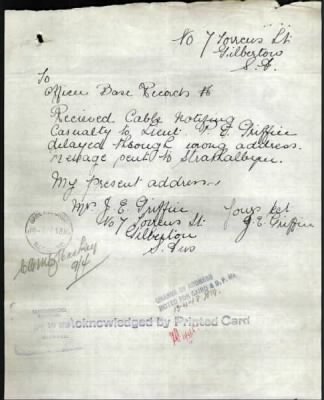 No 7 Torrens St
Gilberton
S. A.
To
Officer Base Records
Recieved Cable Notifing
Casualty to Lieut V. E. Griffin
delayed through wrong address.
Message sent to Strathalbyn.
My present address,
Mrs J E Griffin
No 7 Torrens St
Gilberton
S. Aus
Yours ret
J. E. Griffin
CHANGE OF ADDRESS
NOTED FOR
Acknowledged by Printed Card